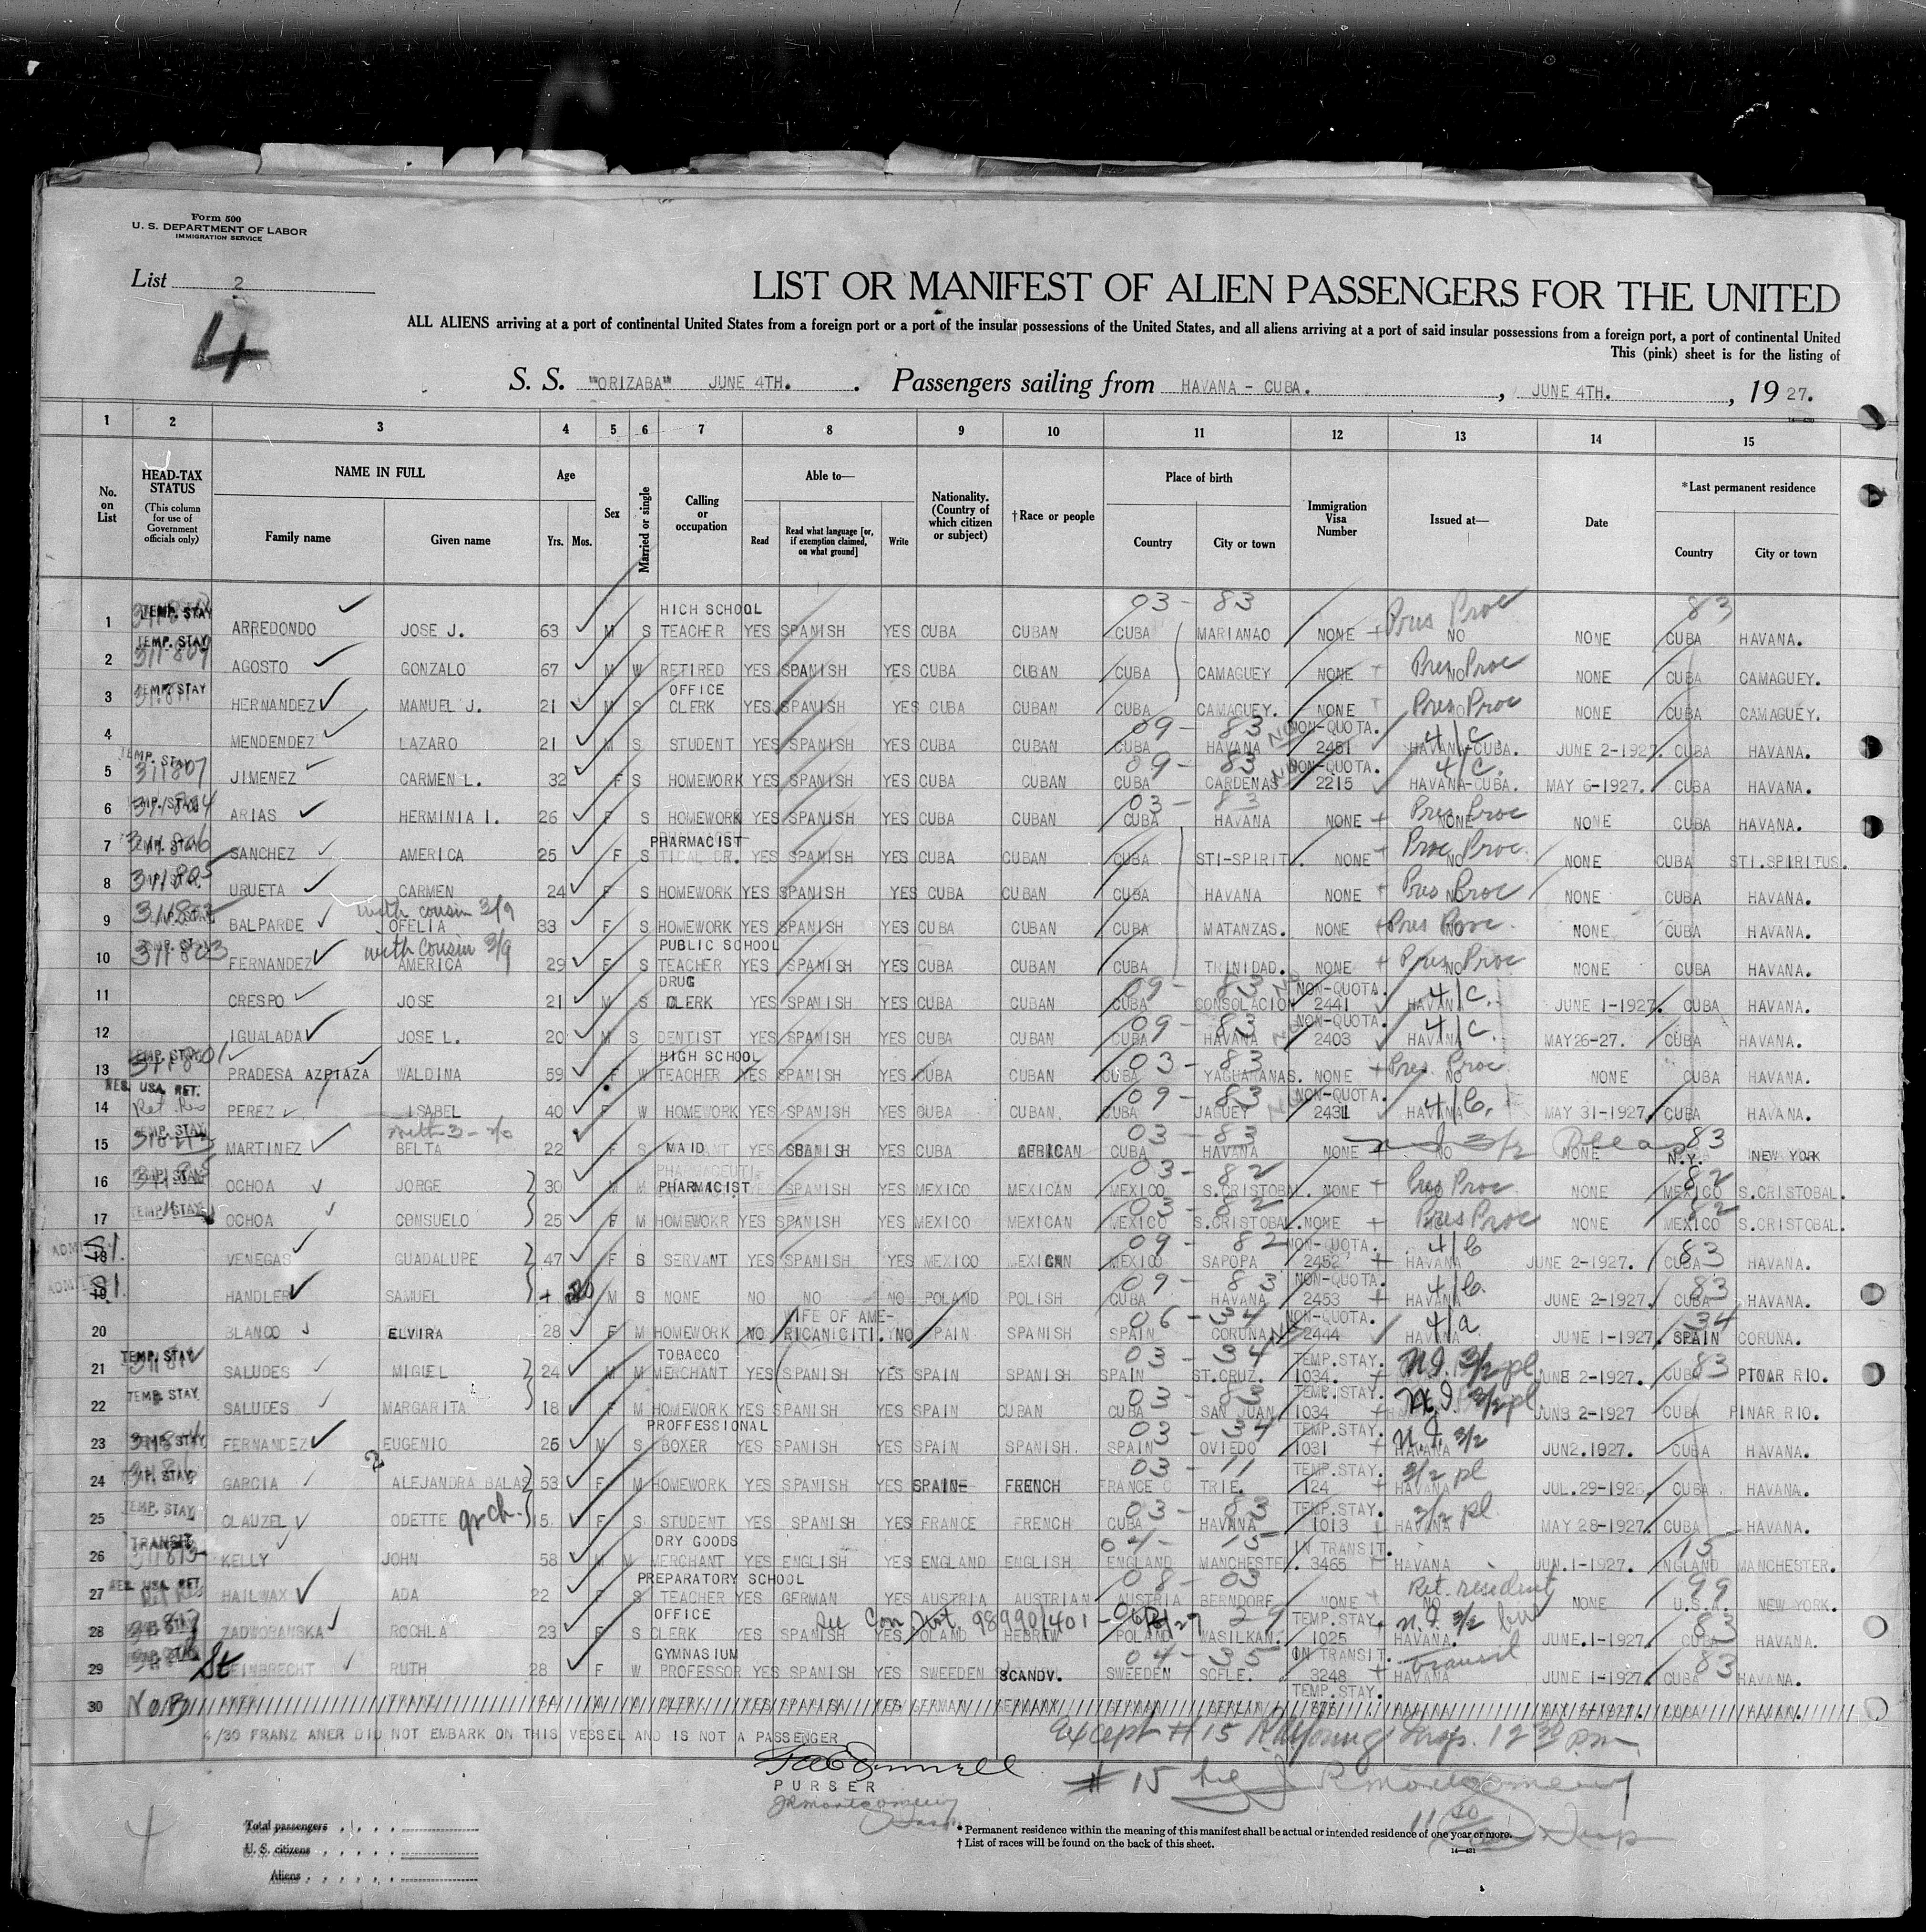 Form 500
U. S. DEPARTMENT OF LABOR
IMMIGRATION SERVICE
List 2
4
LIST OR MANIFEST OF ALIEN PASSENGERS FOR THE UNITED
ALL ALIENS arriving at a port of continental United States from a foreign port or a port of the insular possessions of the United States, and all aliens arriving at a port of said insular possessions from a foreign port, a port of continental United
This (pink) sheet is for the listing of
S. S. "ORIZABA" JUNE 4TH. Passengers sailing from HAVANA - CUBA. , JUNE 4TH. , 1927.
1 2 3 4 5 6 7 8 9 10 11 12 13 14 15
No. on List
HEAD-TAX STATUS (This column for use of Government officials only)
NAME IN FULL
Family name Given name
Age Yrs. Mos.
Sex
Married or single
Calling or occupation
Able to—
Read Read what language [or, if exemption claimed, on what ground] Write
Nationality. (Country of which citizen or subject)
†Race or people
Place of birth
Country City or town
Immigration Visa Number
Issued at—
Date
*Last permanent residence
Country City or town
03 - 83 Pres Proc 83
1 TEMP. STAY ARREDONDO JOSE J. 63 M S HIGH SCHOOL TEACHER YES SPANISH YES CUBA CUBAN CUBA MARIANAO NONE NO NONE CUBA HAVANA.
2 TEMP. STAY 311804 AGOSTO GONZALO 67 M W RETIRED YES SPANISH YES CUBA CUBAN CUBA CAMAGUEY NONE NO Pres Proc NONE CUBA CAMAGUEY.
3 TEMP. STAY HERNANDEZ MANUEL J. 21 M S OFFICE CLERK YES SPANISH YES CUBA CUBAN CUBA CAMAGUEY. NONE Pres Proc NONE CUBA CAMAGUEY.
09 - 83 NON-QUOTA. 4/C
4 MENDENDEZ LAZARO 21 M S STUDENT YES SPANISH YES CUBA CUBAN CUBA HAVANA 2451 HAVANA-CUBA. JUNE 2-1927. CUBA HAVANA.
09 - 83 NON-QUOTA. 4/C.
5 TEMP. STAY 311807 JIMENEZ CARMEN L. 32 F S HOMEWORK YES SPANISH YES CUBA CUBAN CUBA CARDENAS 2215 HAVANA-CUBA. MAY 6-1927. CUBA HAVANA.
03 - 83
6 ARIAS HERMINIA I. 26 F S HOMEWORK YES SPANISH YES CUBA CUBAN CUBA HAVANA NONE NONE Pres Proc NONE CUBA HAVANA.
7 SANCHEZ AMERICA 25 F S PHARMACIST YES SPANISH YES CUBA CUBAN CUBA STI-SPIRIT. NONE NO Proc Proc. NONE CUBA STI.SPIRITUS.
8 311805 URUETA CARMEN 24 F S HOMEWORK YES SPANISH YES CUBA CUBAN CUBA HAVANA NONE NO Pres Proc NONE CUBA HAVANA.
with cousin 3/9
9 BALPARDE OFELIA 33 F S HOMEWORK YES SPANISH YES CUBA CUBAN CUBA MATANZAS. NONE NO Pres Proc. NONE CUBA HAVANA.
with cousin 3/9
10 311803 FERNANDEZ AMERICA 29 F S PUBLIC SCHOOL TEACHER YES SPANISH YES CUBA CUBAN CUBA TRINIDAD. NONE NO Pres Proc NONE CUBA HAVANA.
09 - 83 NON-QUOTA. 4/C.
11 CRESPO JOSE 21 M S DRUG CLERK YES SPANISH YES CUBA CUBAN CUBA CONSOLACION 2441 HAVANA JUNE 1-1927. CUBA HAVANA.
09 - 83 NON-QUOTA. 4/C.
12 IGUALADA JOSE L. 20 M S DENTIST YES SPANISH YES CUBA CUBAN CUBA HAVANA 2403 HAVANA MAY26-27. CUBA HAVANA.
03 - 83
13 311801 PRADESA AZPIAZA WALDINA 59 F W HIGH SCHOOL TEACHER YES SPANISH YES CUBA CUBAN CUBA YAGUAJANAS. NONE NO Pres. Proc. NONE CUBA HAVANA.
RES. USA. RET. 09 - 83 NON-QUOTA. 4/C.
14 Ret Res PEREZ ISABEL 40 F W HOMEWORK YES SPANISH YES CUBA CUBAN. CUBA JAGUEY 2431 HAVANA MAY 31-1927. CUBA HAVANA.
03 - 83 83
15 TEMP. STAY MARTINEZ BELTA 22 F S MAID YES SPANISH YES CUBA AFRICAN CUBA HAVANA NONE NO 3/2 NONE N.Y. NEW YORK
03 - 82 82
16 TEMP. STAY OCHOA JORGE 30 M M PHARMACIST SPANISH YES MEXICO MEXICAN MEXICO S.CRISTOBAL. NONE Pres Proc NONE MEXICO S.CRISTOBAL.
03 - 82 82
17 TEMP. STAY OCHOA CONSUELO 25 F M HOMEWOKR YES SPANISH YES MEXICO MEXICAN MEXICO S.CRISTOBAL. NONE Pres Proc NONE MEXICO S.CRISTOBAL.
09 - 82 NON-QUOTA. 4/C 83
18 VENEGAS GUADALUPE 47 F S SERVANT YES SPANISH YES MEXICO MEXICAN MEXICO SAPOPA 2452 HAVANA JUNE 2-1927. CUBA HAVANA.
09 - 83 NON-QUOTA. 4/C. 83
19 HANDLER SAMUEL M S NONE NO NO NO POLAND POLISH CUBA HAVANA 2453 HAVANA JUNE 2-1927. CUBA HAVANA.
06 - 34 NON-QUOTA. 4/a 34
20 BLANCO ELVIRA 28 F M HOMEWORK NO WIFE OF AME-RICAN CITI. NO SPAIN SPANISH SPAIN CORUNA 2444 HAVANA JUNE 1-1927. SPAIN CORUNA.
03 - 34 TEMP.STAY. N.I. 3/2 pl. 83
21 TEMP. STAY SALUDES MIGIEL 24 M M TOBACCO MERCHANT YES SPANISH YES SPAIN SPANISH SPAIN ST.CRUZ. 1034. JUN8 2-1927. CUBA PINAR RIO.
03 - 83 TEMP.STAY. N.I. 3/2 pl.
22 TEMP. STAY SALUDES MARGARITA 18 F M HOMEWORK YES SPANISH YES SPAIN CUBAN CUBA SAN JUAN 1034 JUN3 2-1927 CUBA PINAR RIO.
03 - 34 TEMP.STAY. N.I. 3/2
23 TEMP. STAY FERNANDEZ EUGENIO 26 M S PROFFESSIONAL BOXER YES SPANISH YES SPAIN SPANISH. SPAIN OVIEDO 1031 HAVANA JUN2.1927. CUBA HAVANA.
03 - 11 TEMP.STAY. 3/2 pl
24 TEMP. STAY GARCIA ALEJANDRA BALAS 53 F M HOMEWORK YES SPANISH YES SPAIN FRENCH FRANCE TRIE. 124 HAVANA JUL.29-1926. CUBA HAVANA.
03 - 83 TEMP.STAY. 3/2 pl.
25 TEMP. STAY CLAUZEL ODETTE gr ch. 15 F S STUDENT YES SPANISH YES FRANCE FRENCH CUBA HAVANA 1013 HAVANA MAY 28-1927. CUBA HAVANA.
04 - 15 IN TRANSIT. 15
26 TRANSIT KELLY JOHN 58 M M DRY GOODS MERCHANT YES ENGLISH YES ENGLAND ENGLISH ENGLAND MANCHESTER. 3465 HAVANA JUN.1-1927. ENGLAND MANCHESTER.
08 - 03 Ret. resident 99
27 RES. USA. RET. Ret Res HAILWAX ADA 22 F S PREPARATORY SCHOOL TEACHER YES GERMAN YES AUSTRIA AUSTRIAN AUSTRIA BERNDORF. NONE NO NONE U.S.A. NEW YORK.
98990/401 TEMP.STAY. N.I. 3/2 bus 83
28 ZADWORANSKA ROCHLA 23 F S OFFICE CLERK YES SPANISH YES POLAND HEBREW POLAND WASILKAN. 1025 HAVANA. JUNE.1-1927. CUBA HAVANA.
04 - 35 ON TRANSIT. Transit 83
29 STEINBRECHT RUTH 28 F W GYMNASIUM PROFESSOR YES SPANISH YES SWEEDEN SCANDV. SWEEDEN SCFLE. 3248 HAVANA JUNE 1-1927. CUBA HAVANA.
30 TEMP.STAY.
4/30 FRANZ ANER DID NOT EMBARK ON THIS VESSEL AND IS NOT A PASSENGER
Except #15 Insp. 12 30 P.M.
PURSER
#15 by J R Montgomery
JR Montgomery
4
Total passengers
U. S. citizens
Aliens
* Permanent residence within the meaning of this manifest shall be actual or intended residence of one year or more.
† List of races will be found on the back of this sheet.